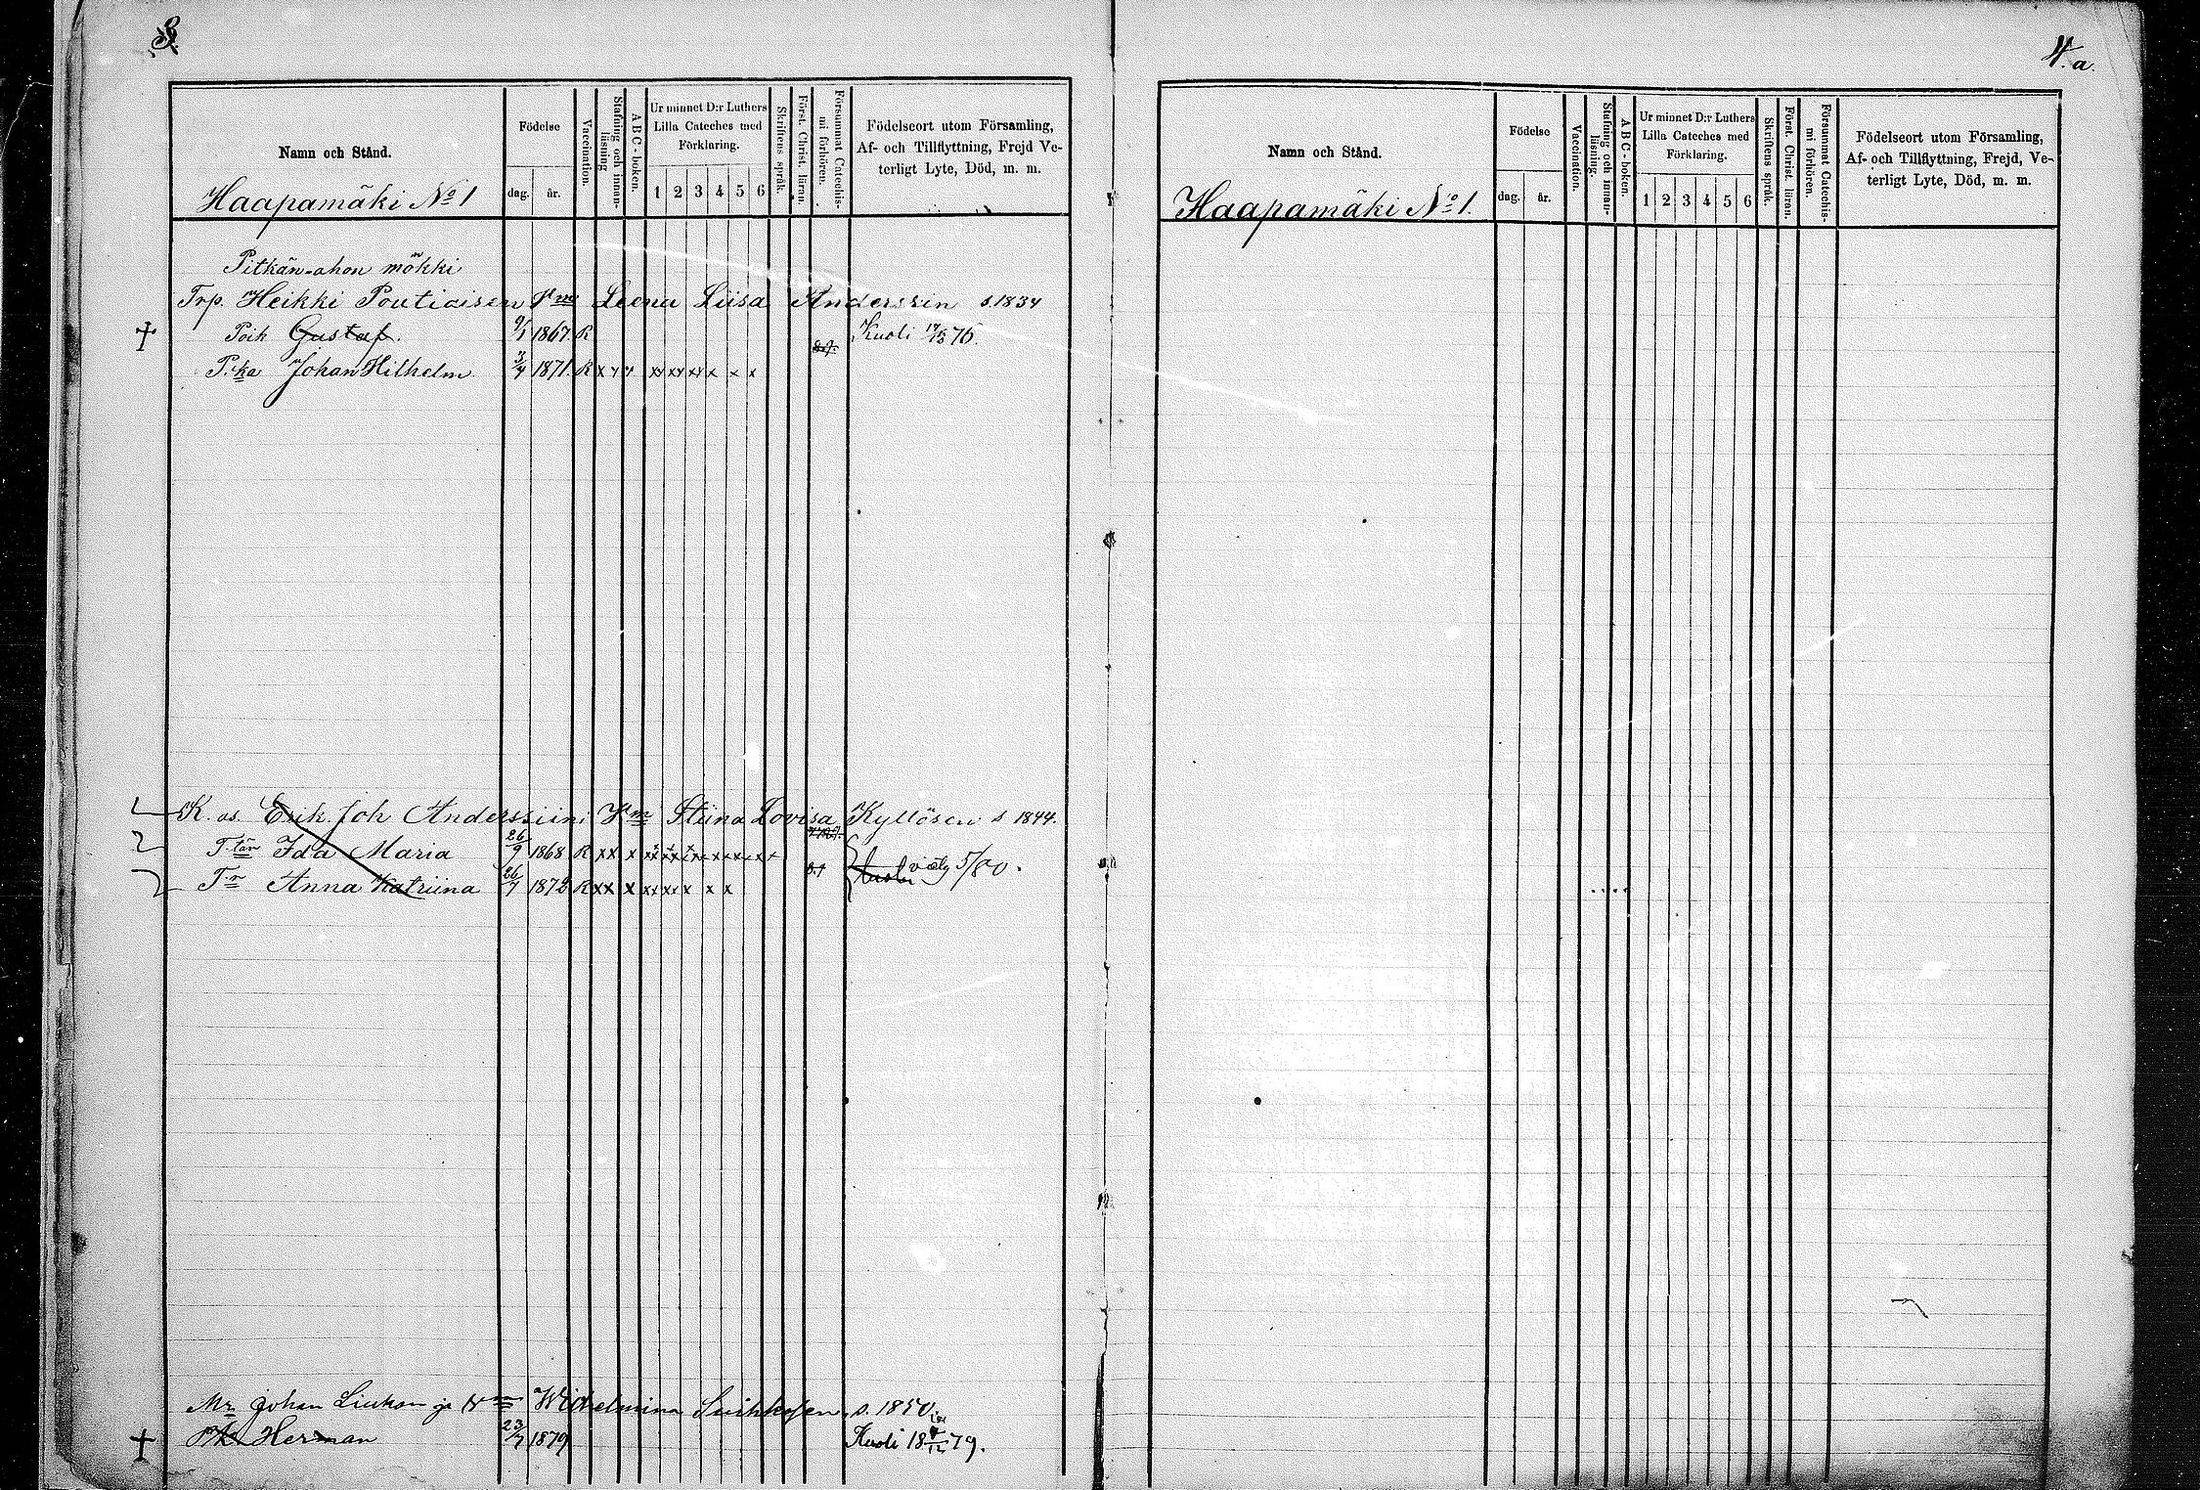 3.
Namn och Stånd.
Haapamäki No 1
Födelse
dag. år.
Vaccination.
Stafning och innanläsning
A B C-boken.
Ur minnet D:r Luthers
Lilla Cateches med
Förklaring.
1 2 3 4 5 6
Skriftens språk.
Först. Christ. läran.
Försummat Catechismi förhören.
Födelseort utom Församling,
Af- och Tillflyttning, Frejd Ve-
terligt Lyte, Död, m. m.
Pitkän-ahon mökki
Trp. Heikki Poutiaisen Leena Liisa Anderssin s. 1834
Poik Gustaf. 9/1 1867. R Kuoli 76.
P:ka Johan Wilhelm 3/4 1871. R x x x x x x
K. as. Erik Joh Anderssiini Stiina Lovisa Kyllösen s 1844.
T:tär Ida Maria 26/9 1868 R x x x
T:r Anna Katriina 26/7 1872 R x x x 5/80.
Johan Liukon ja Wilhelmina s. 1850.
Herman 23/7 1879 Kuoli 79.
4. a.
Namn och Stånd.
Haapamäki No 1.
Födelse
dag. år.
Vaccination.
Stafning och innanläsning.
A B C-boken.
Ur minnet D:r Luthers
Lilla Cateches med
Förklaring.
1 2 3 4 5 6
Skriftens språk.
Först. Christ. läran.
Försummat Catechismi förhören.
Födelseort utom Församling,
Af- och Tillflyttning, Frejd, Ve-
terligt Lyte, Död, m. m.